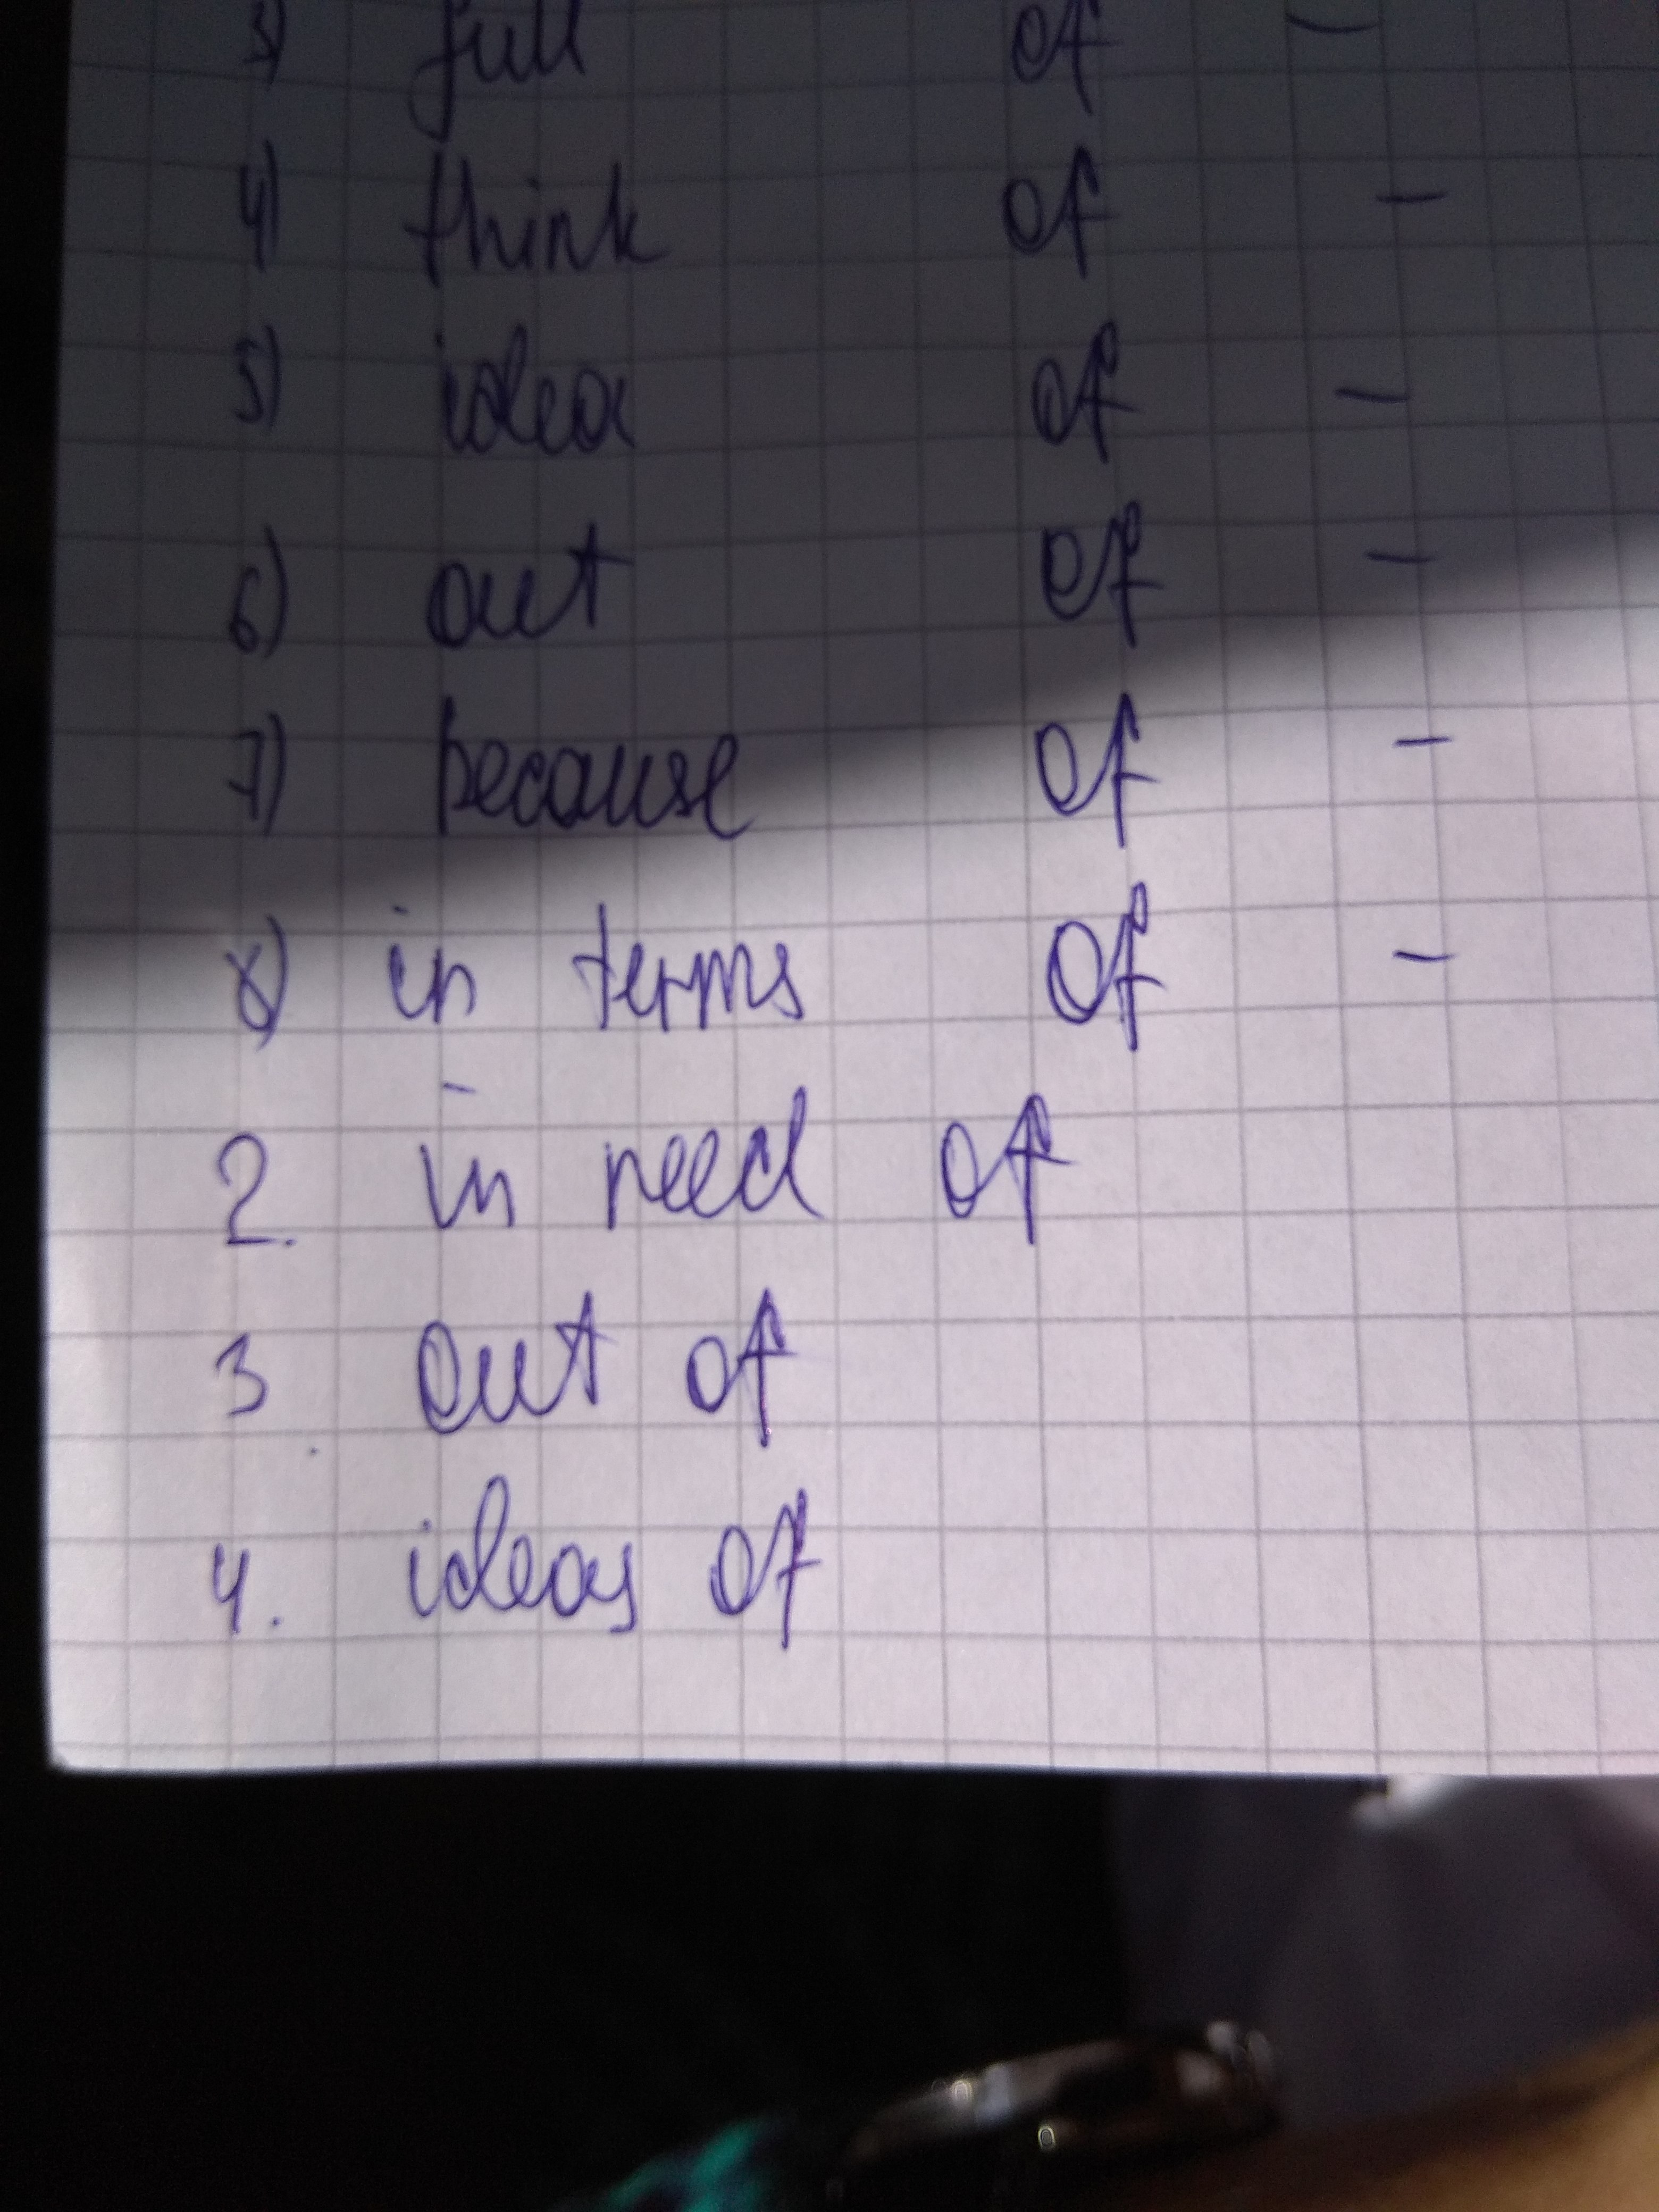 3) full of -
4) think of -
5) idea of -
6) out of -
7) because of -
8) in terms of -
2. in need of
3 out of
4. ideas of